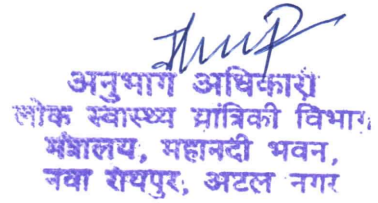 अनुभाग अधिकारी
लोक स्वास्थ्य यांत्रिकी विभाग,
मंत्रालय, महानदी भवन,
नवा रायपुर, अटल नगर